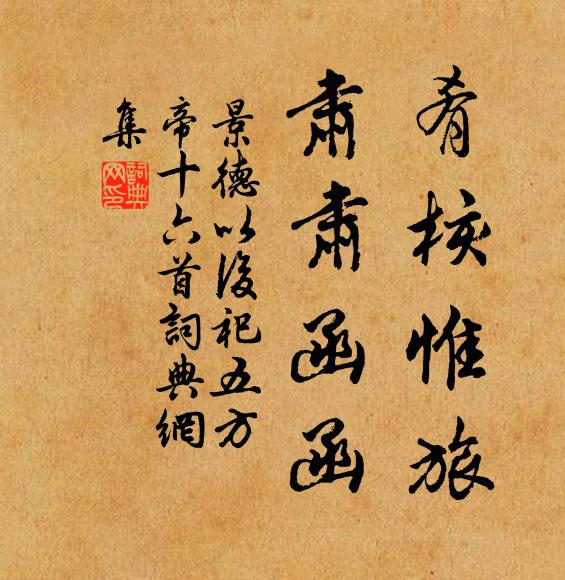 肴核惟旅
肅肅函函
景德以後祀五方
帝十六首詞典網
集
詞典網印